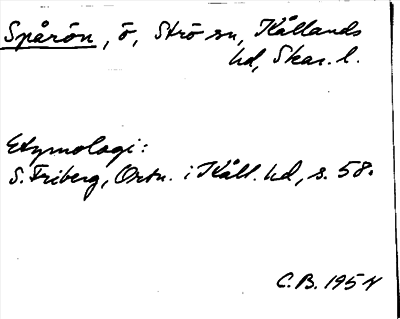 Spårön, ö, Strö sn, Kållands
hd, Skar. l.
Etymologi:
S. Friberg, Ortn. i Kåll. hd, s. 58.
C.B. 195